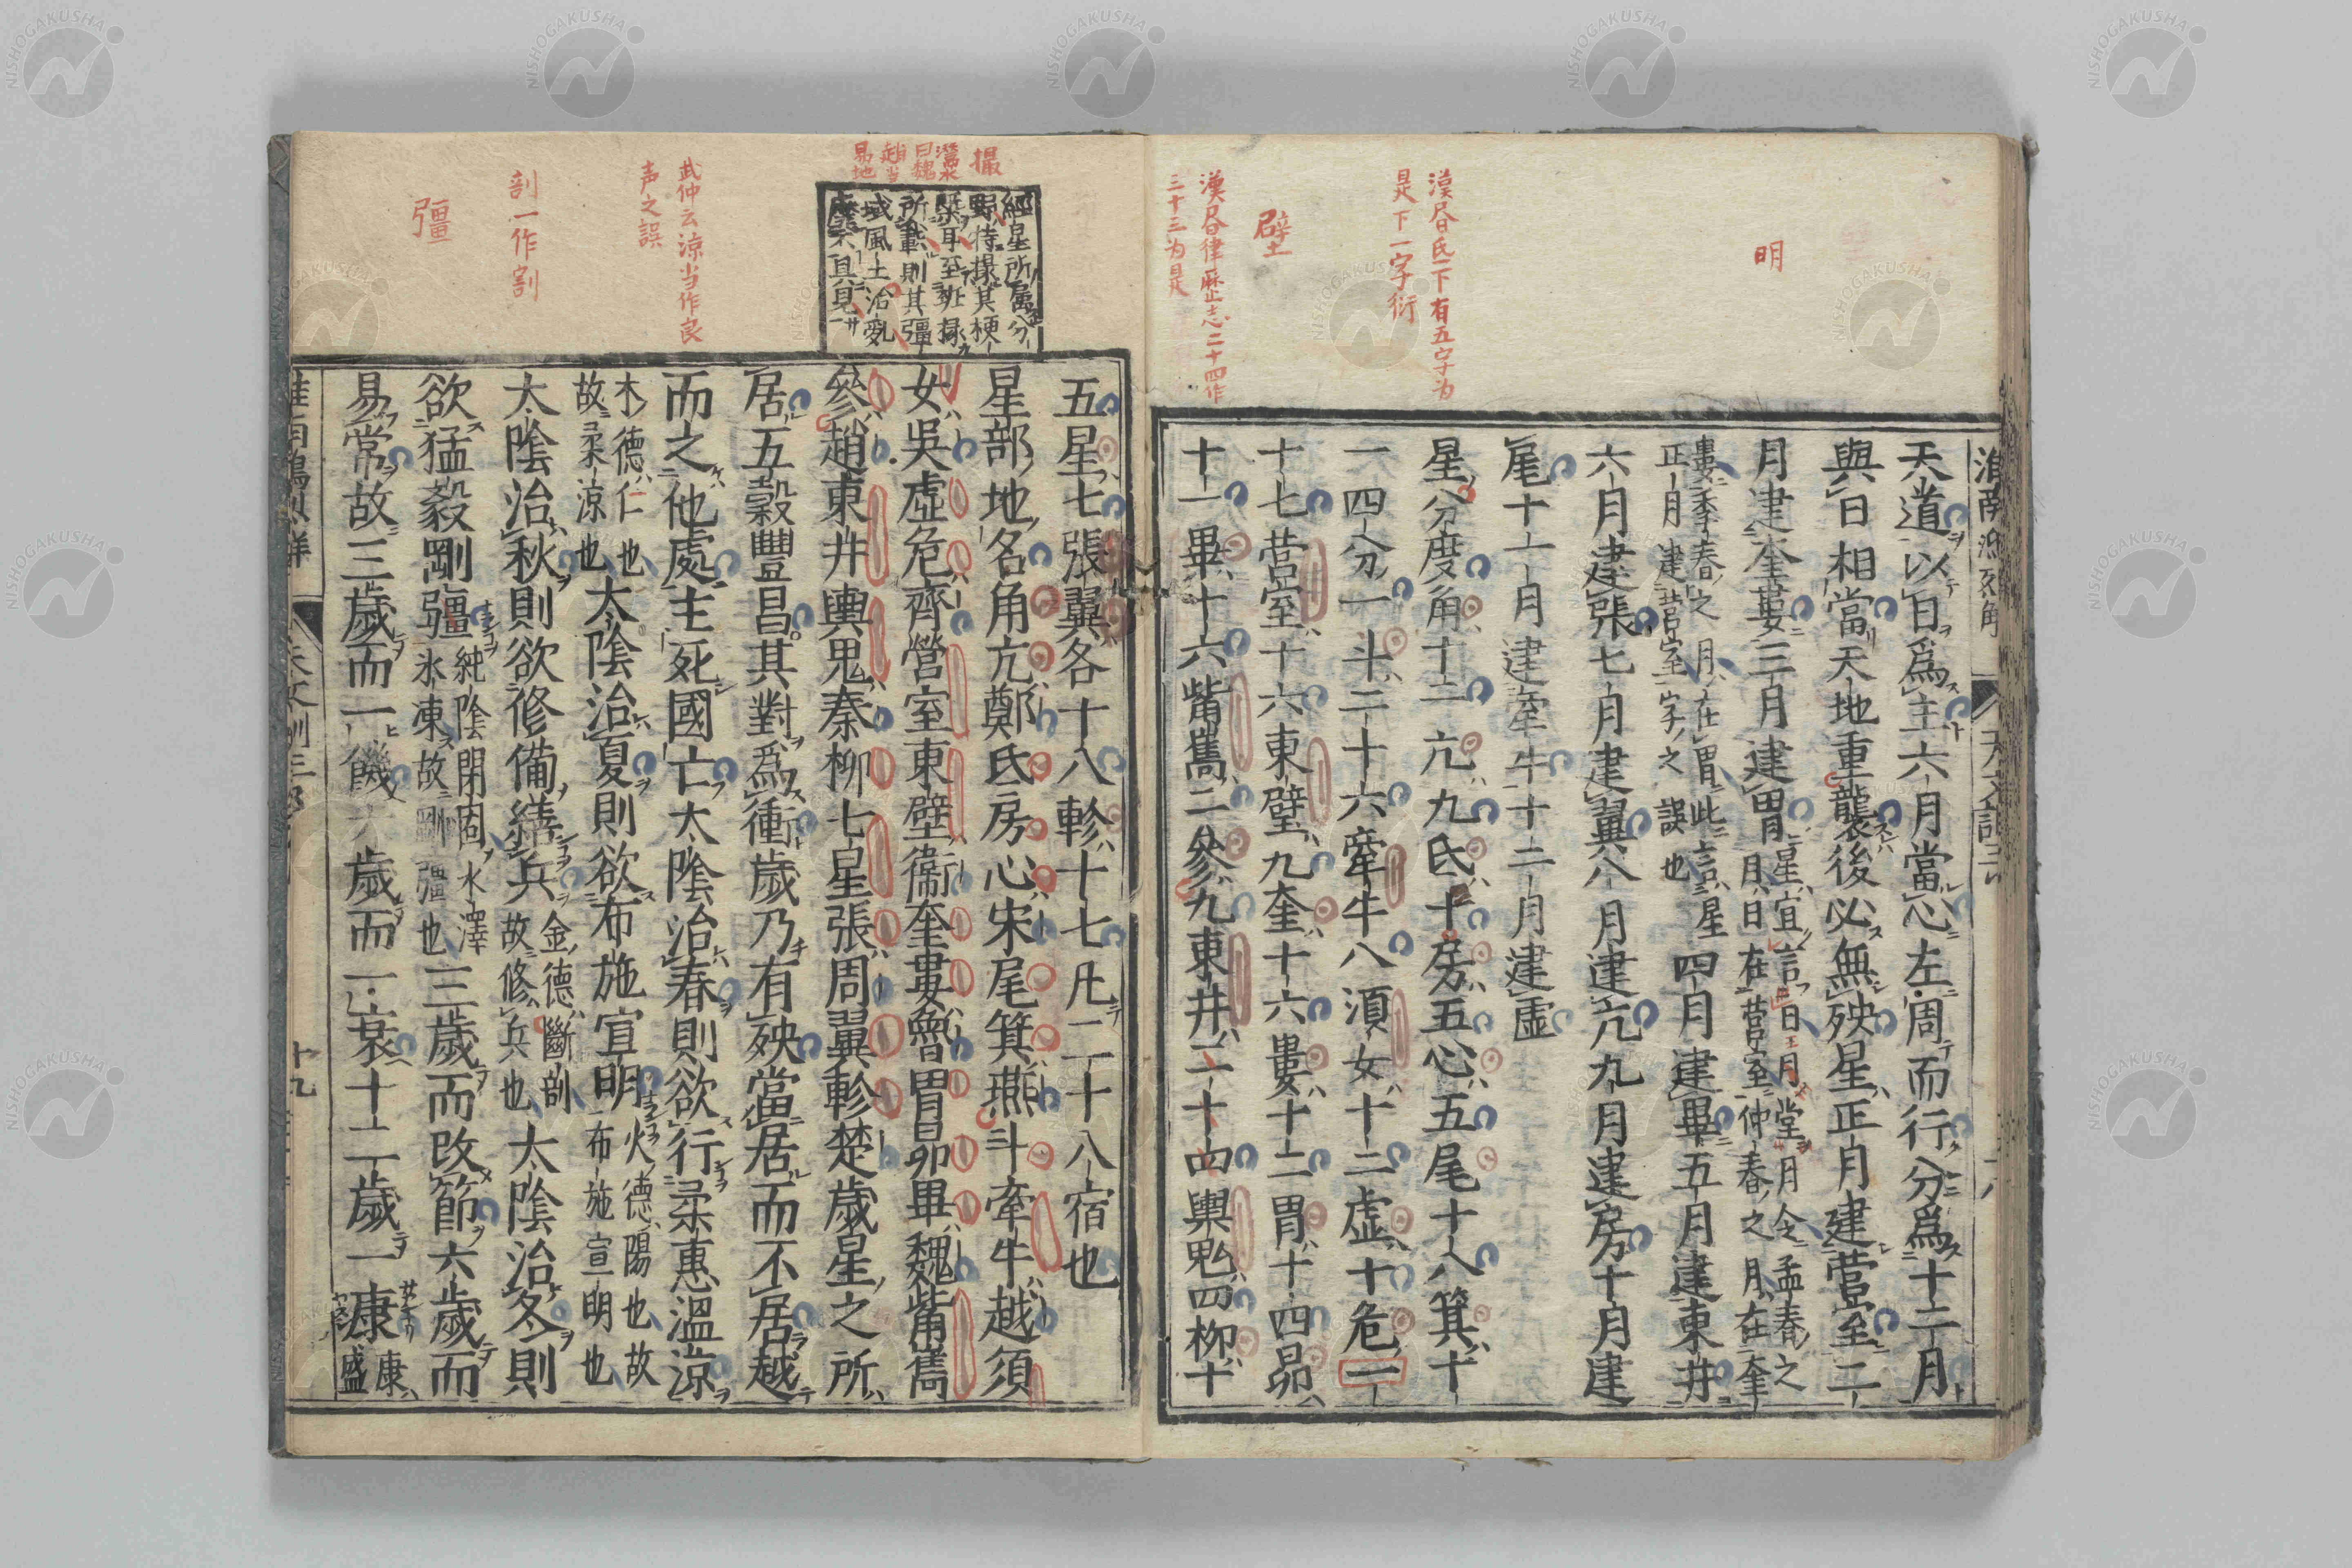 明
漢昏氐下有五字为
是下一字衍
壁
漢昏律厤志二十四作
三十三为是
天道以日爲主六月當心左周而行分爲十二月
與日相當天地重襲後必無殃星正月建營室二
月建奎婁三月建胃
星宜言日月堂月令孟春之
月日在營室仲春之月在奎
婁季春之月在胃此言星
正月建營室字之誤也
四月建畢五月建東井
六月建張七月建翼八月建亢九月建房十月建
尾十一月建牽牛十二月建虛
星分度角十二亢九氐十房五心五尾十八箕十
一四分一斗二十六牽牛八須女十二虛十危一
十七營室十六東壁九奎十六婁十二胃十四昴
十一畢十六觜雋二參九東井二十四輿鬼四柳十
撮
日魏
趙当
易地
經星所属分
野特撮其梗
槩耳至班掾
所載則其彊
域風土治亂
廢具見
武仲云涼当作良
声之誤
剖一作割
彊
五星七張翼各十八軫十七凡二十八宿也
星部地名角亢鄭氐房心宋尾箕燕斗牽牛越須
女吳虛危齊營室東壁衞奎婁魯胃昴畢魏觜雋
參趙東井輿鬼秦柳七星張周翼軫楚歲星之所
居五穀豐昌其對爲衝歲乃有殃當居而不居越
而之他處主死國亡太陰治春則欲行柔惠溫涼
木德仁也
故柔涼也
太陰治夏則欲布施宣明
火德陽也故
布施宣明也
太陰治秋則欲修備繕兵
金德斷剖
故修兵也
太陰治冬則
欲猛毅剛彊
純陰閉固水澤
氷凍故剛彊也
三歲而改節六歲而
易常故三歲而一饑六歲而一衰十二歲一康
康
盛
十九